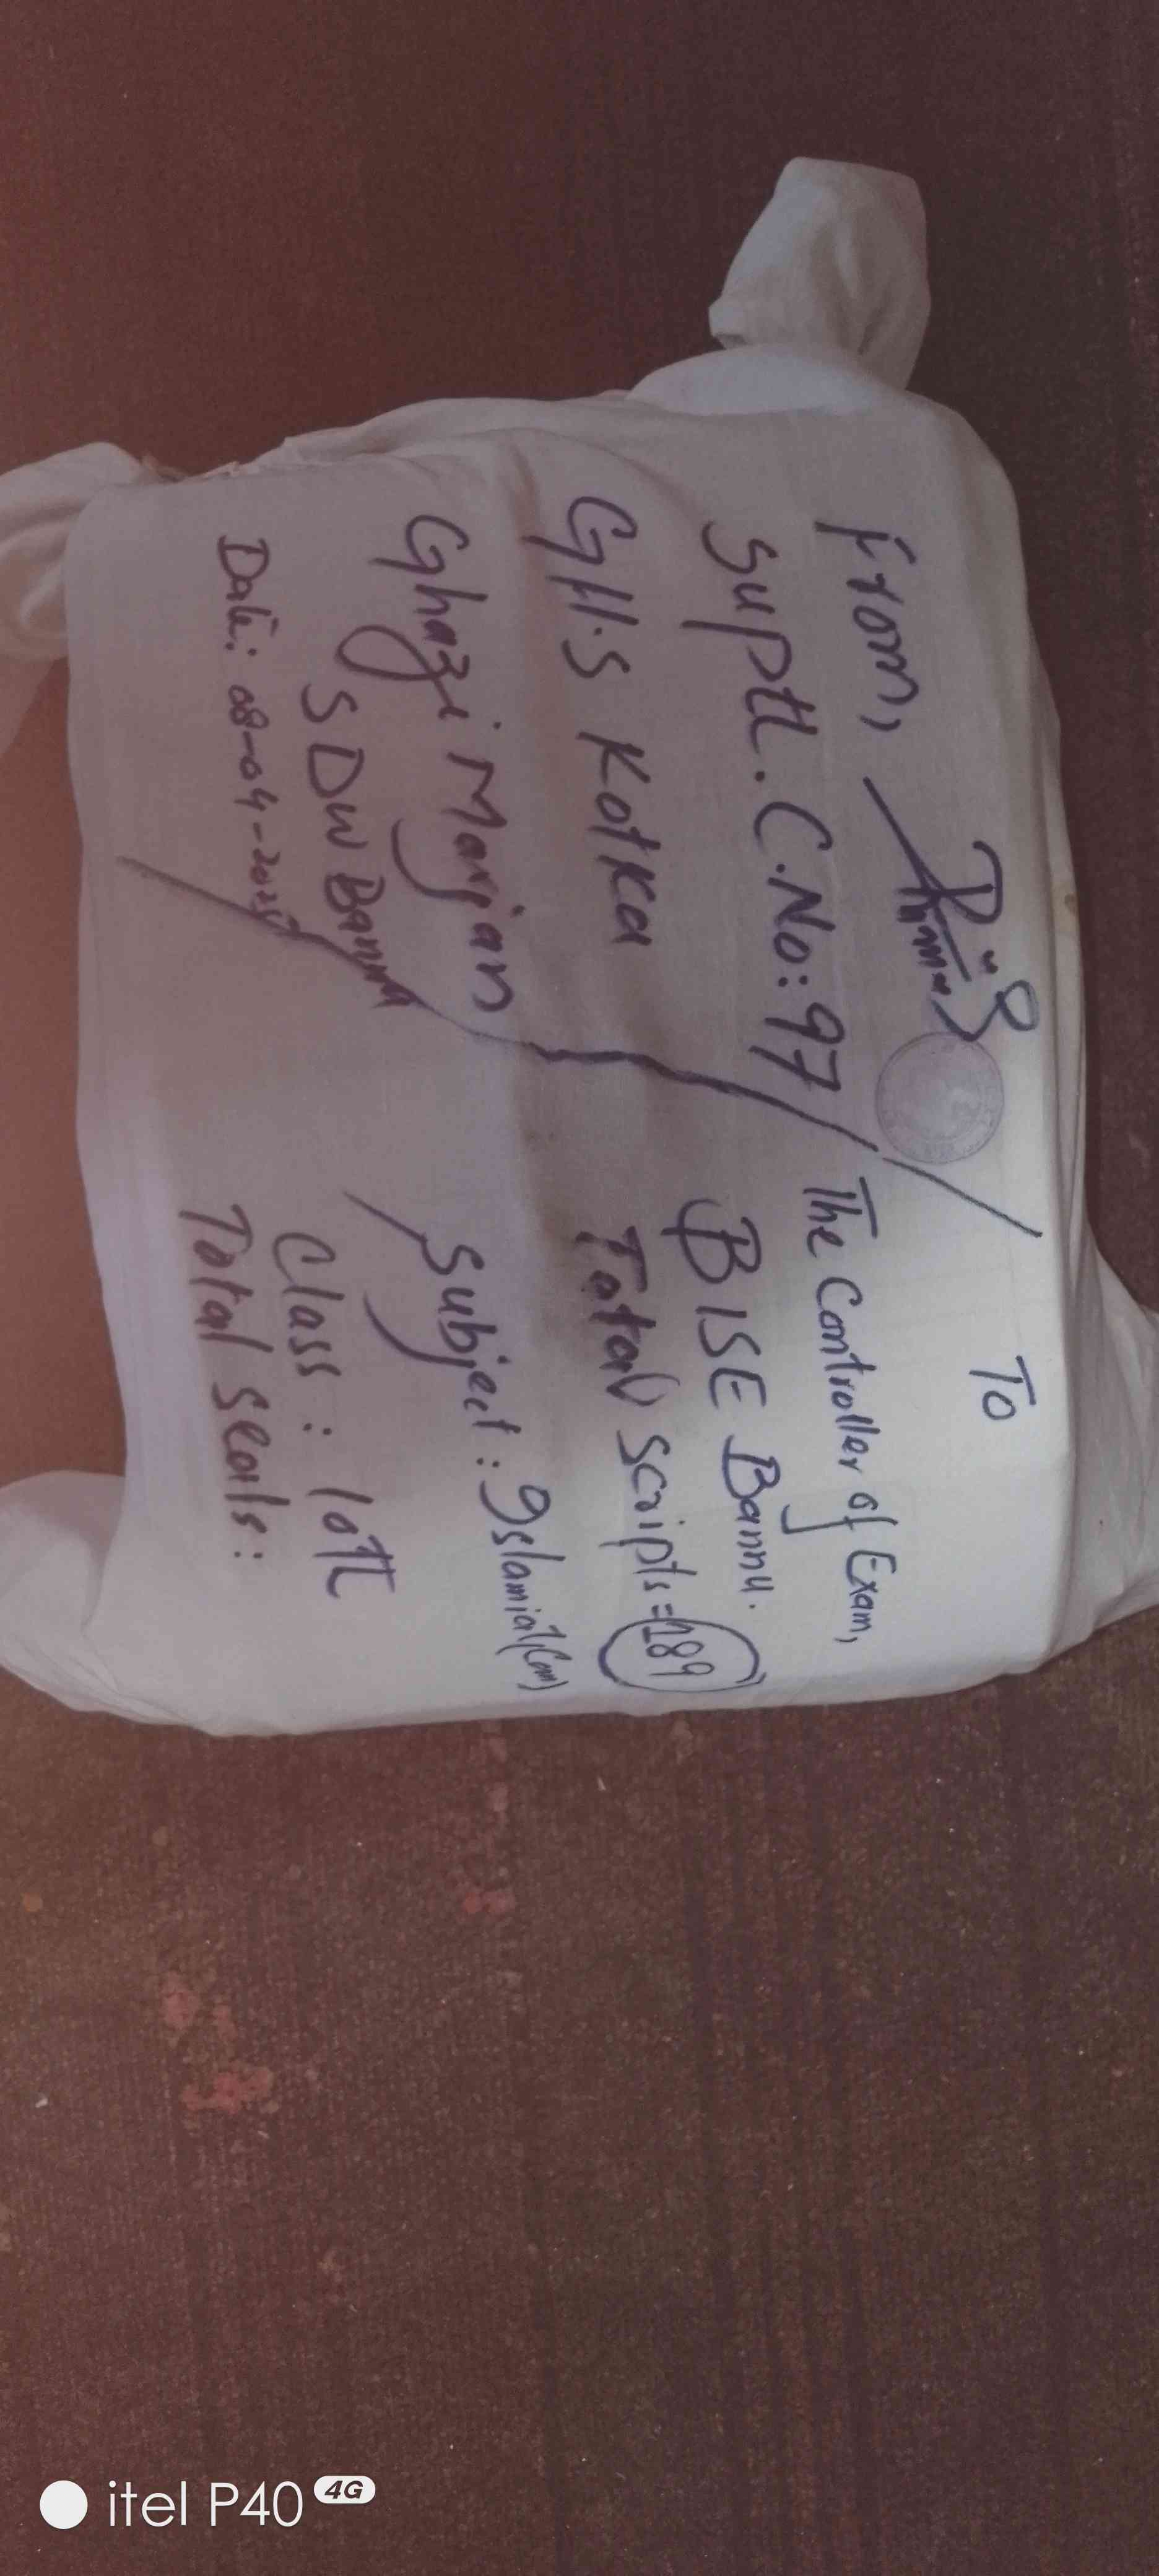 From,
Suptt. C.No: 97
GH.S Kotka
Ghazi Marjan
SDW Bannu
Date: 08-04-2025
To
The Controller of Exam,
BISE Bannu.
Total Scripts = 189
Subject: Islamiat(Com)
Class: 10th
Total Seals:
itel P40 4G